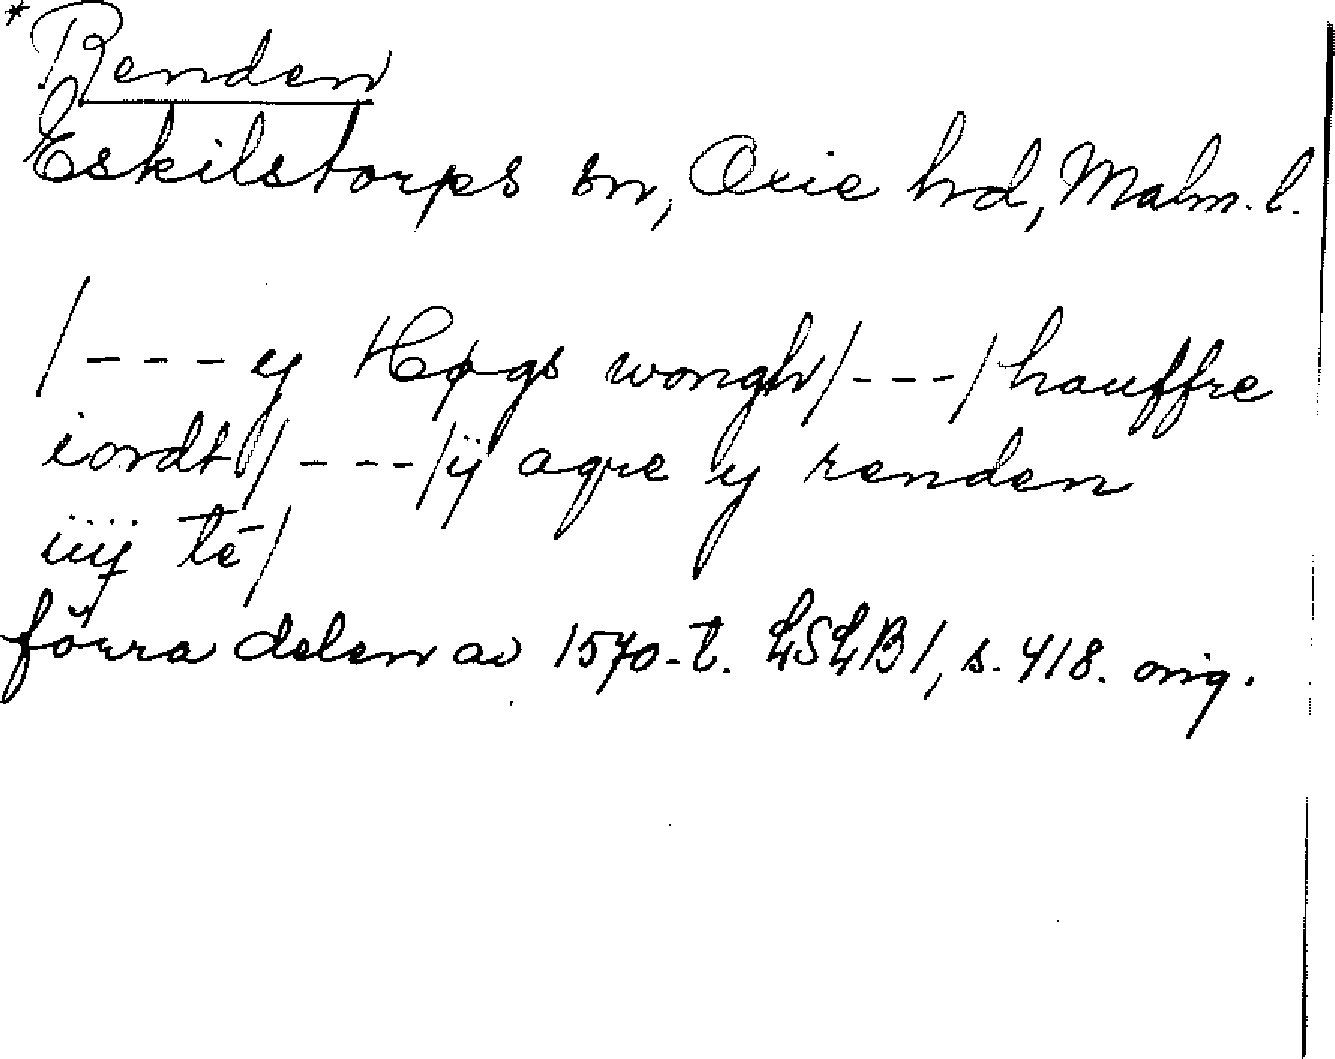 *Renden
Eskilstorps sn, Oxie hrd, Malm. l.
/---y Høgs wongh/---/hauffre
iordt/---/ij agre y renden
iiij te/
förra delen av 1570-t. LSLB1, s. 418. orig.